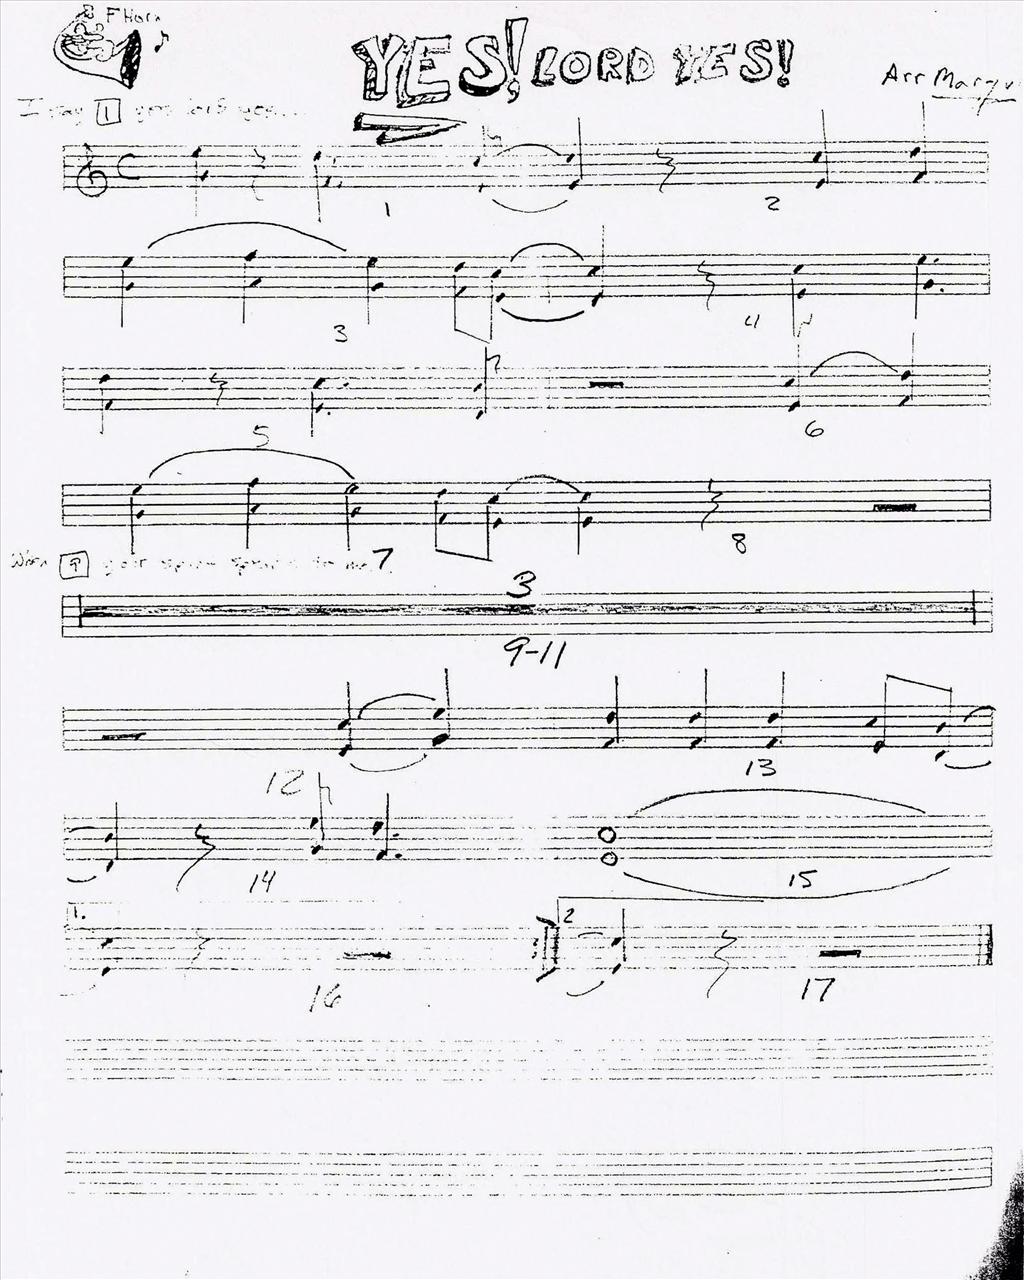 F Horn
YES! LORD YES!
Arr Marqu
I say 1 yes lord yes...
1 2
3 4
5 6
7 8
When 9 your spirit speaks to me..
3
9-11
12 13
14 15
1. 2
16 17